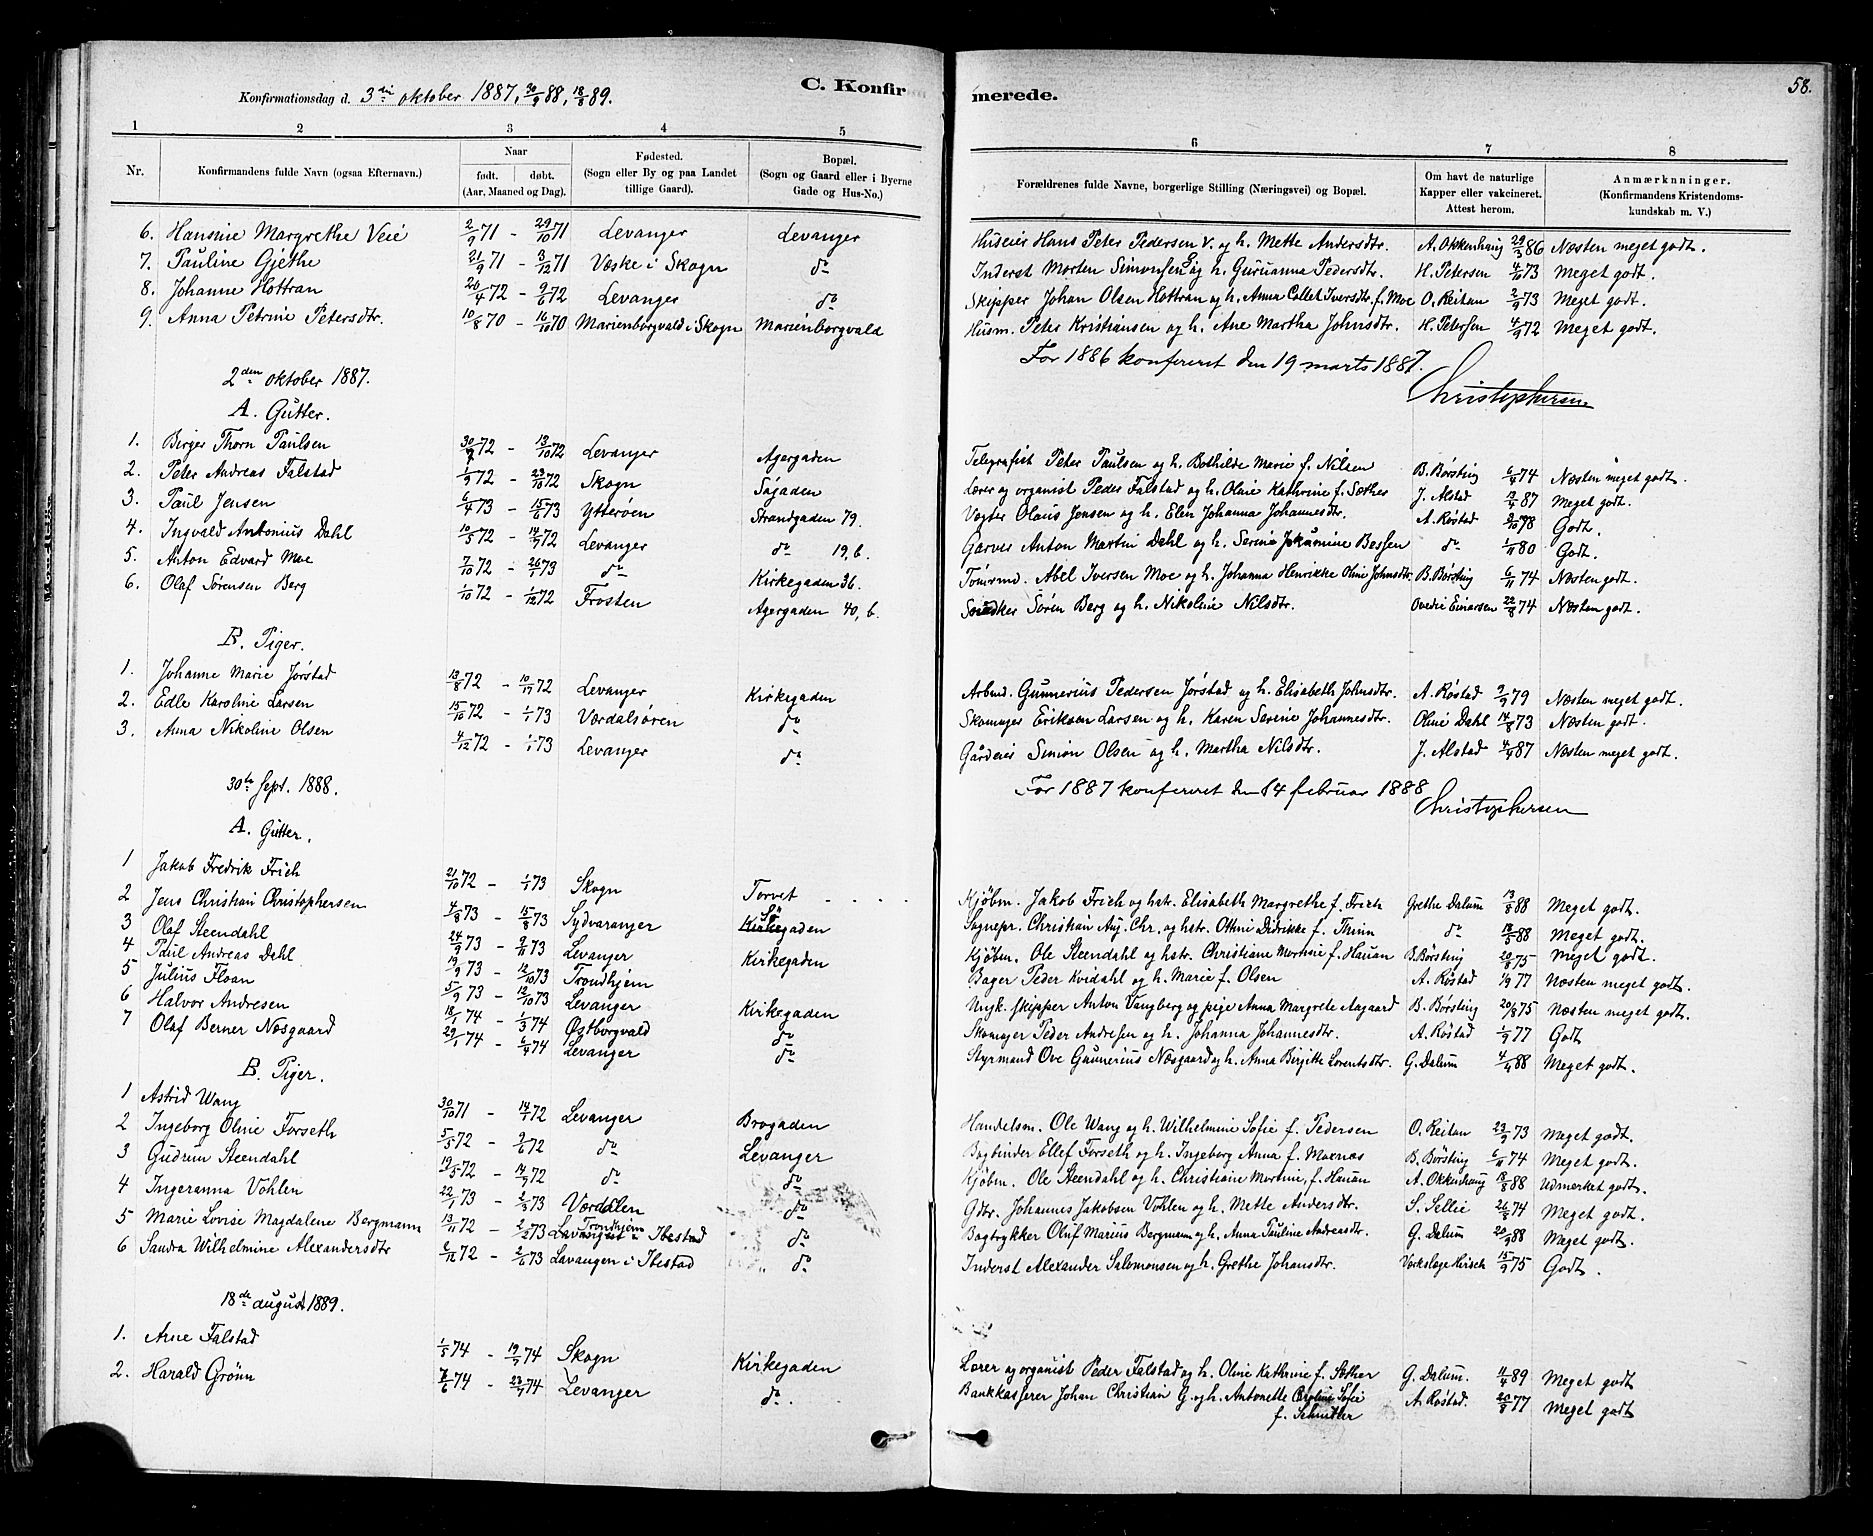 58.
C. Konfirmerede.
Konfirmationsdag d. 3die oktober 1887, 30/9 88, 18/8 89.
1 2 3 4 5 6 7 8
Nr. Konfirmandens fulde Navn (ogsaa Efternavn). Naar født. døbt. (Aar, Maaned og Dag). Fødested. (Sogn eller By og paa Landet tillige Gaard). Bopæl. (Sogn og Gaard eller i Byerne Gade og Hus-No.) Forældrenes fulde Navne, borgerlige Stilling (Næringsvei) og Bopæl. Om havt de naturlige Kapper eller vakcineret. Attest herom. Anmærkninger. (Konfirmandens Kristendomskundskab m. V.)
6. Hansine Margrethe Veie 2/9 71 - 29/10 71 Levanger Levanger Huseier Hans Peter Pedersen V. og h. Mette Andersdtr. A. Okkenhaug 29/3 86 Næsten meget godt.
7. Pauline Gjethe 21/9 71 - 3/12 71 Væske i Skogn do Inderst Morten Simonsen G. og h. Guruanna Pedersdtr. H. Petersen 4/10 73 Meget godt.
8. Johanne Hottran 20/4 72 - 9/6 72 Levanger do Skipper Johan Olsen Hottran og h. Anna Collet Iversdtr. f. Moe O. Reitan 2/9 73 Meget godt.
9. Anna Petrine Petersdtr. 10/8 70 - 16/10 70 Marienborgvald i Skogn Marienborgvald Husm. Peter Kristiansen og h. Ane Martha Johnsdtr. H. Petersen 4/9 72 Meget godt.
For 1886 konfereret den 19 marts 1887.
Christophersen
2den oktober 1887.
A. Gutter.
1. Birger Thorn Paulsen 30/7 72 - 13/10 72 Levanger Agergaden Telegrafist Peter Paulsen og h. Bothilde Marie f. Nilsen B. Børsting 6/4 74 Næsten meget godt.
2. Peter Andreas Falstad 1/9 72 - 23/10 72 Skogn Søgaden Lærer og organist Peder Falstad og h. Oline Kathrine f. Sæther J. Alstad 12/4 87 Meget godt.
3. Paul Jensen 6/4 73 - 15/6 73 Ytterøen Strandgaden 79. Vægter Olaus Jensen og h. Elen Johanna Johannesdtr. A. Røstad 9/10 78 Godt.
4. Ingvald Antonius Dahl 10/5 72 - 14/7 72 Levanger do 19, b. Garver Anton Martin Dahl og h. Serine Jokumine Bessen do 1/11 80 Godt.
5. Anton Edvard Moe 7/10 72 - 26/1 73 do Kirkegaden 36. Tømrmd. Abel Iversen Moe og h. Johanna Henrikke Oline Johnsdtr. B. Børsting 6/11 74 Næsten godt.
6. Olaf Sørensen Berg 1/10 72 - 1/12 72 Frosten Agergaden 40, b. Snedker Søren Berg og h. Nikoline Nilsdtr. Ovedie Einarsen 22/8 74 Næsten godt.
B. Piger.
1. Johanne Marie Jørstad 13/8 72 - 10/11 72 Levanger Kirkegaden Arbmd. Gunnerius Pedersen Jørstad og h. Elisabeth Johnsdtr. A. Røstad 9/9 79 Næsten meget godt.
2. Edle Karoline Larsen 15/10 72 - 1/1 73 Værdalsøren do Skomager Eriksen Larsen og h. Karen Serine Johannesdtr. Oline Dahl 14/8 73 Næsten godt.
3. Anna Nikoline Olsen 4/12 72 - 1/1 73 Levanger do Gårdeier Simon Olsen og h. Martha Nilsdtr. J. Alstad 4/9 87 Næsten meget godt.
For 1887 konfereret den 14 februar 1888
Christophersen
30te Sept. 1888.
A. Gutter.
1 Jakob Fredrik Frich 21/10 72 - 1/1 73 Skogn Torvet Kjøbm. Jakob Frich og hstr. Elisabeth Margrethe f. Frich Grethe Dalum 13/8 88 Meget godt.
2 Jens Christian Christophersen 4/8 73 - 15/8 73 Sydvaranger Søgaden Sognepr. Christian Aug. Chr. og hstr. Ottine Didrikke f. Thinn do 18/5 88 Meget godt.
3 Olaf Steendahl 24/9 73 - 9/11 73 Levanger Kirkegaden Kjøbm. Ole Steendahl og hstr. Christiane Mortine f. Hauan B. Børsting 20/8 75 Meget godt.
4 Paul Andreas Dahl 19/9 73 - 12/10 73 Trondhjem Bager Peder Kvidahl og h. Marie f. Olsen A. Røstad 1/9 77 Næsten meget godt.
5 Julius Floan 5/9 73 - 12/10 73 Levanger Kirkegaden Ungk. skipper Anton Vangberg og pige Anna Margrete Aagaard B. Børsting 20/8 75 Næsten meget godt.
6 Halvor Andresen 18/1 74 - 1/3 74 Østborgvald do Skomager Peder Andresen og h. Johanna Johannesdtr. A. Røstad 1/9 77 Godt
7 Olaf Berner Næsgaard 29/1 74 - 6/4 74 Levanger do Styrmand Ove Gunnerius Næsgaard og h. Anna Birgitte Lorentsdtr. G. Dalum 4/4 88 Meget godt.
B. Piger.
1 Astrid Wang 30/10 71 - 14/1 72 Levanger Brogaden Handelsm. Ole Wang og h. Wilhelmine Sofie f. Pedersen O. Reitan 23/9 73 Meget godt.
2 Ingeborg Oline Forseth 5/5 72 - 9/6 72 do Levanger Bogbinder Ellef Forseth og h. Ingeborg Anna f. Mæxnæs B. Børsting 6/11 74 Meget godt.
3 Gudrun Steendahl 19/5 72 - 14/9 72 do do Kjøbm. Ole Steendahl og h. Christiane Mortine f. Hauan A. Okkenhaug 18/8 88 Udmærket godt.
4 Ingeranna Vohlen 22/1 73 - 2/3 73 Værdalen do Gdtr. Johannes Jakobsen Vohlen og h. Mette Andersdtr. S. Sellie 26/8 74 Meget godt.
5 Marie Lovise Magdalene Bergmann 13/11 72 - 2/2 73 Trondhjem Lavangen i Ibestad do Bogtrykker Oluf Marius Bergmann og h. Anna Pauline Andreasdtr. G. Dalum 20/9 88 Meget godt.
6 Sandra Wilhelmine Alexandersdtr 2/12 72 - 2/6 73 Lavangen i Ibestad do Inderst Alexander Salomonsen og h. Grethe Johansdtr. 15/9 75 Godt.
18de august 1889.
1. Arne Falstad 1/5 74 - 19/7 74 Skogn Kirkegaden Lærer og organist Peder Falstad og h. Oline Kathrine f. Sæther G. Dalum. 11/4 89 Meget godt
2. Harald Grønn 7/6 74 - 23/7 74 Levanger do Bankkasserer Johan Christian G. og h. Antonette Caroline Sofie f. Schnitler A. Røstad. 20/8 77 Meget godt